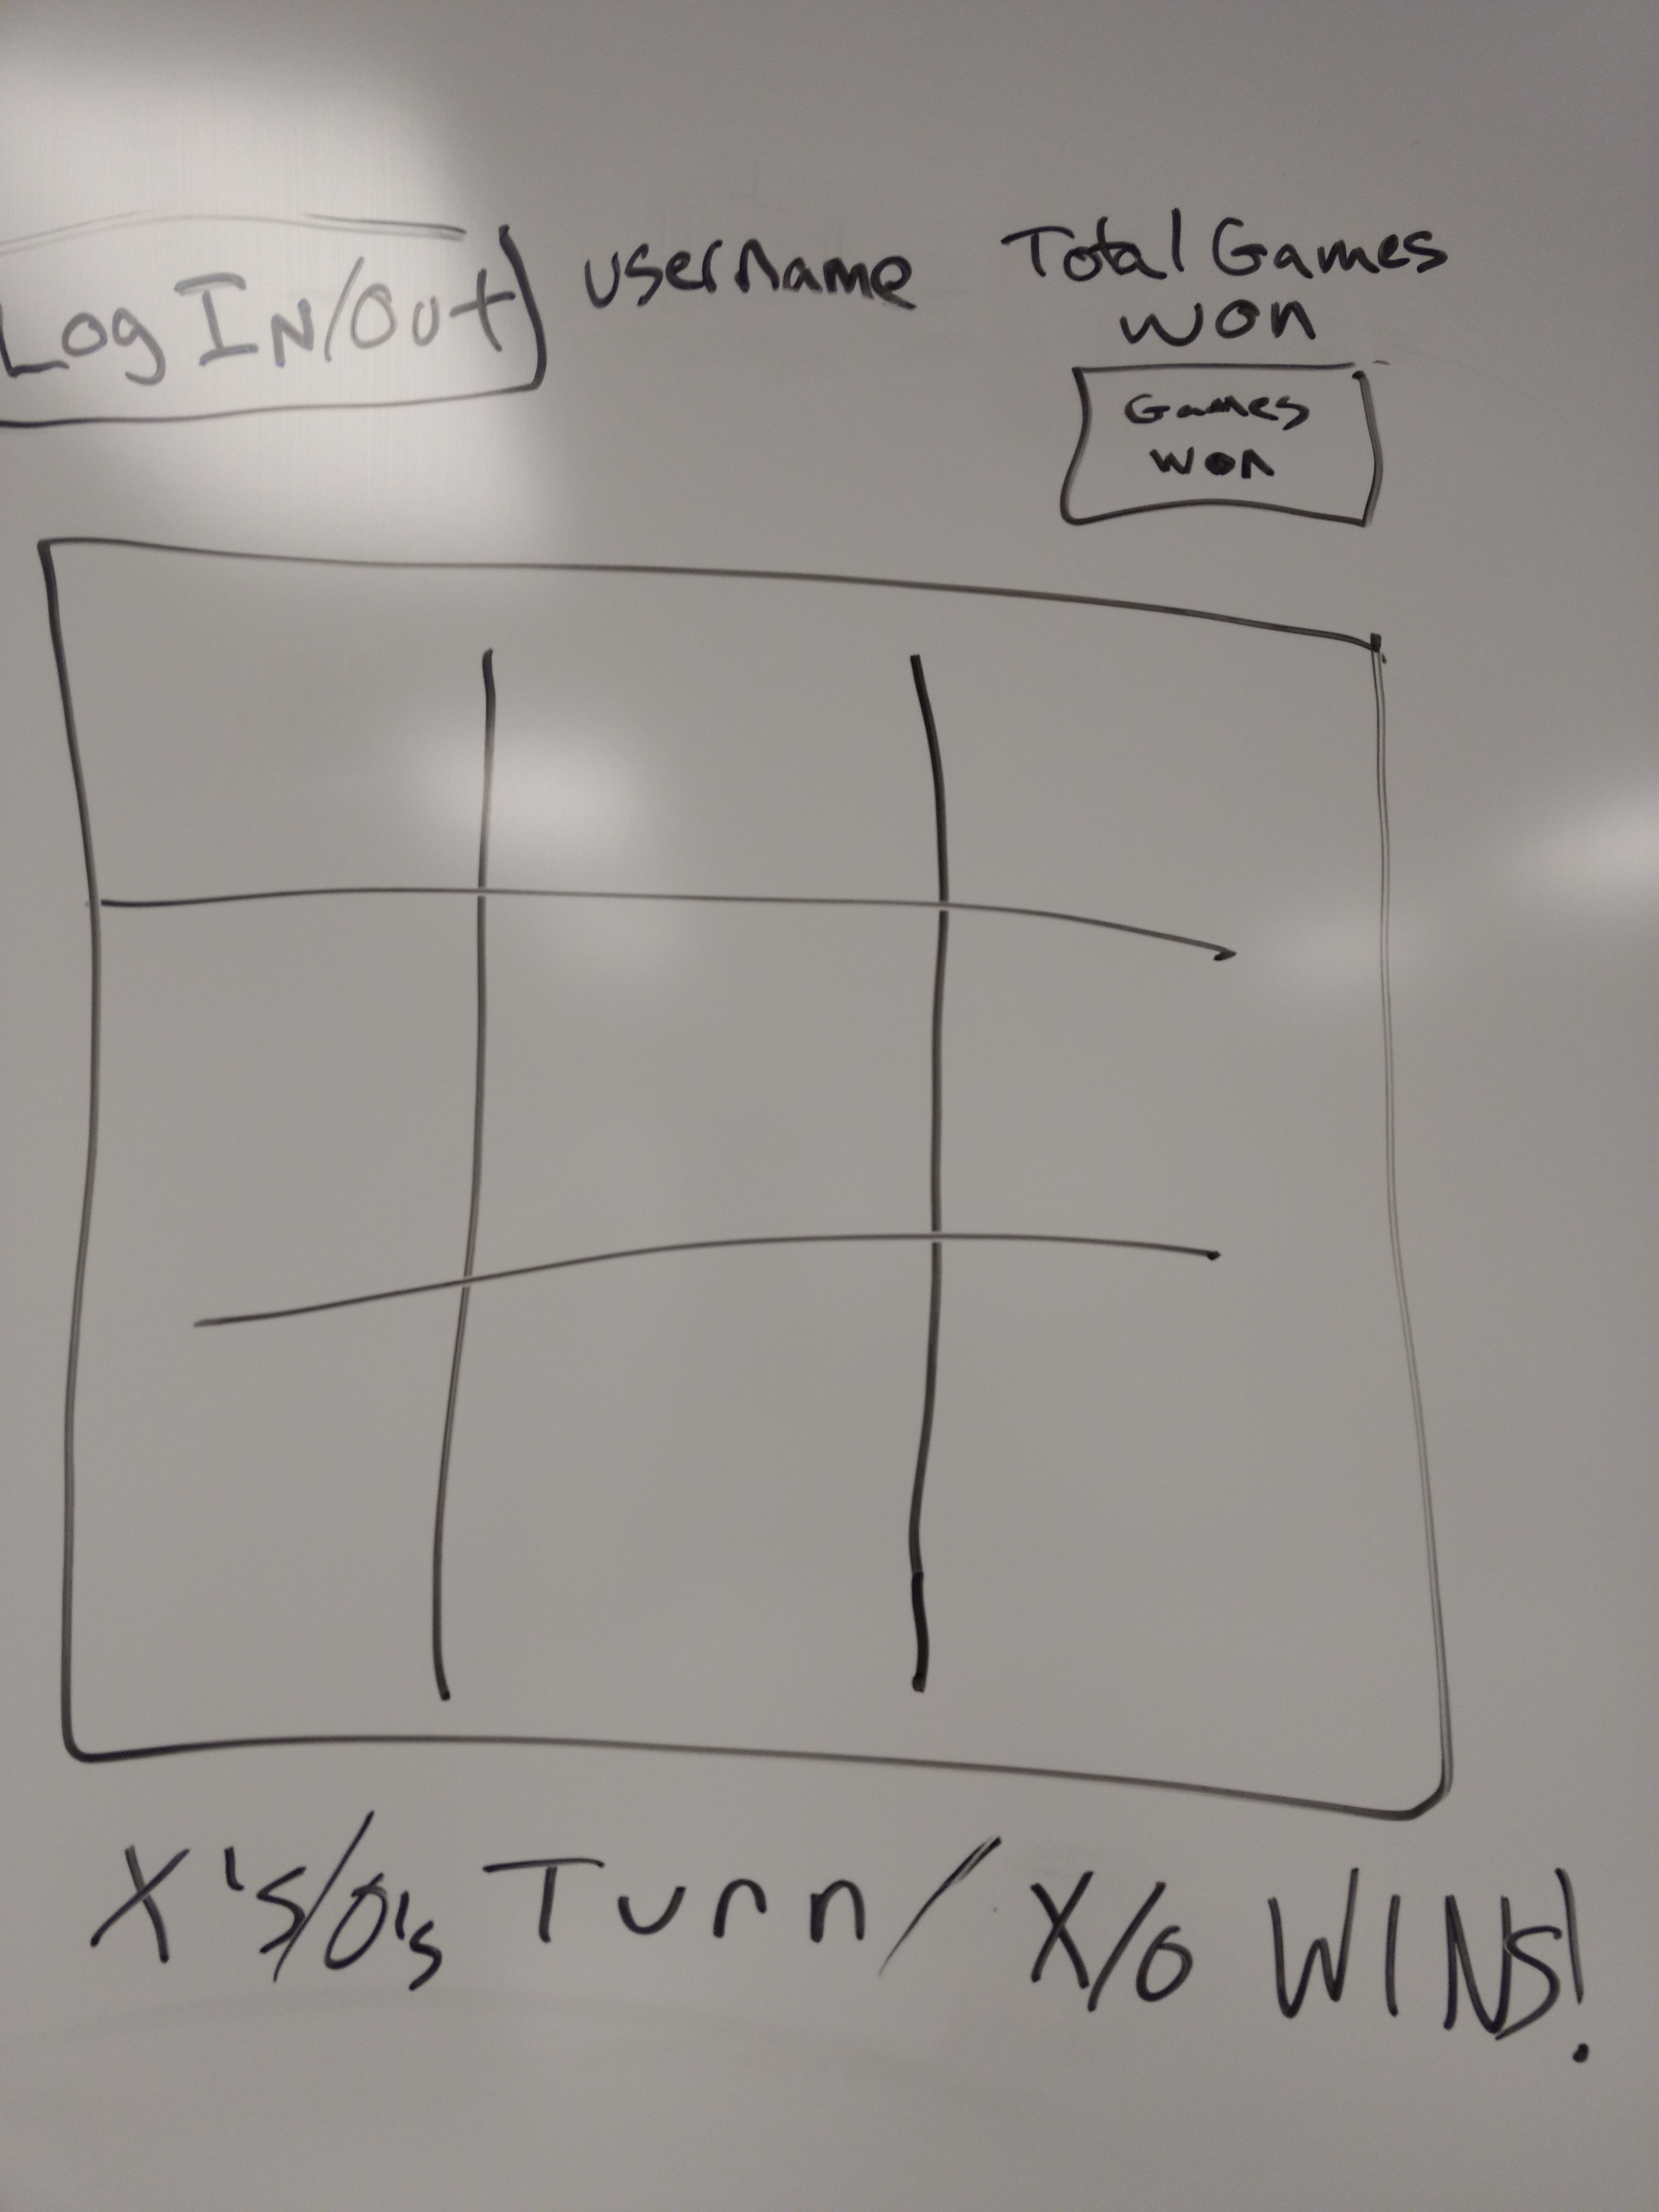 Log IN/Out username Total Games
won
Games
won
X's/O's Turn / X/O WINS!